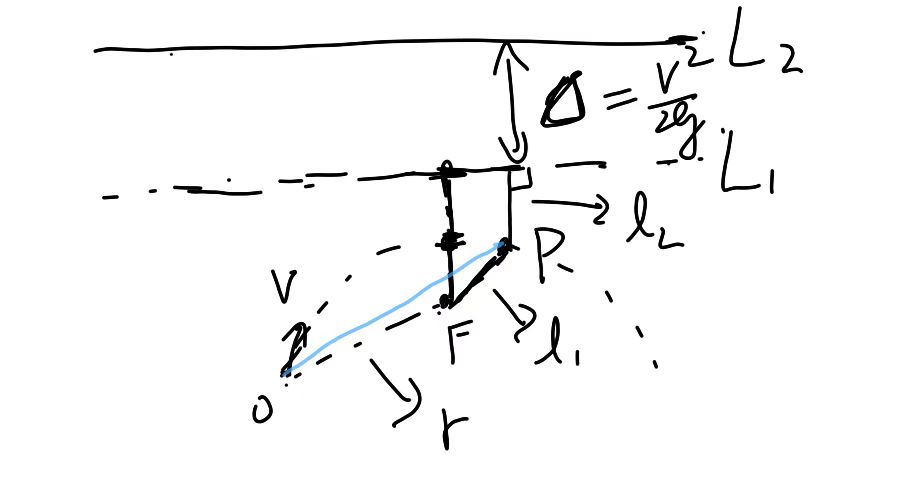 L₂
Δ = v²/2g
L₁
l₂
P
v
F
l₁
O
r